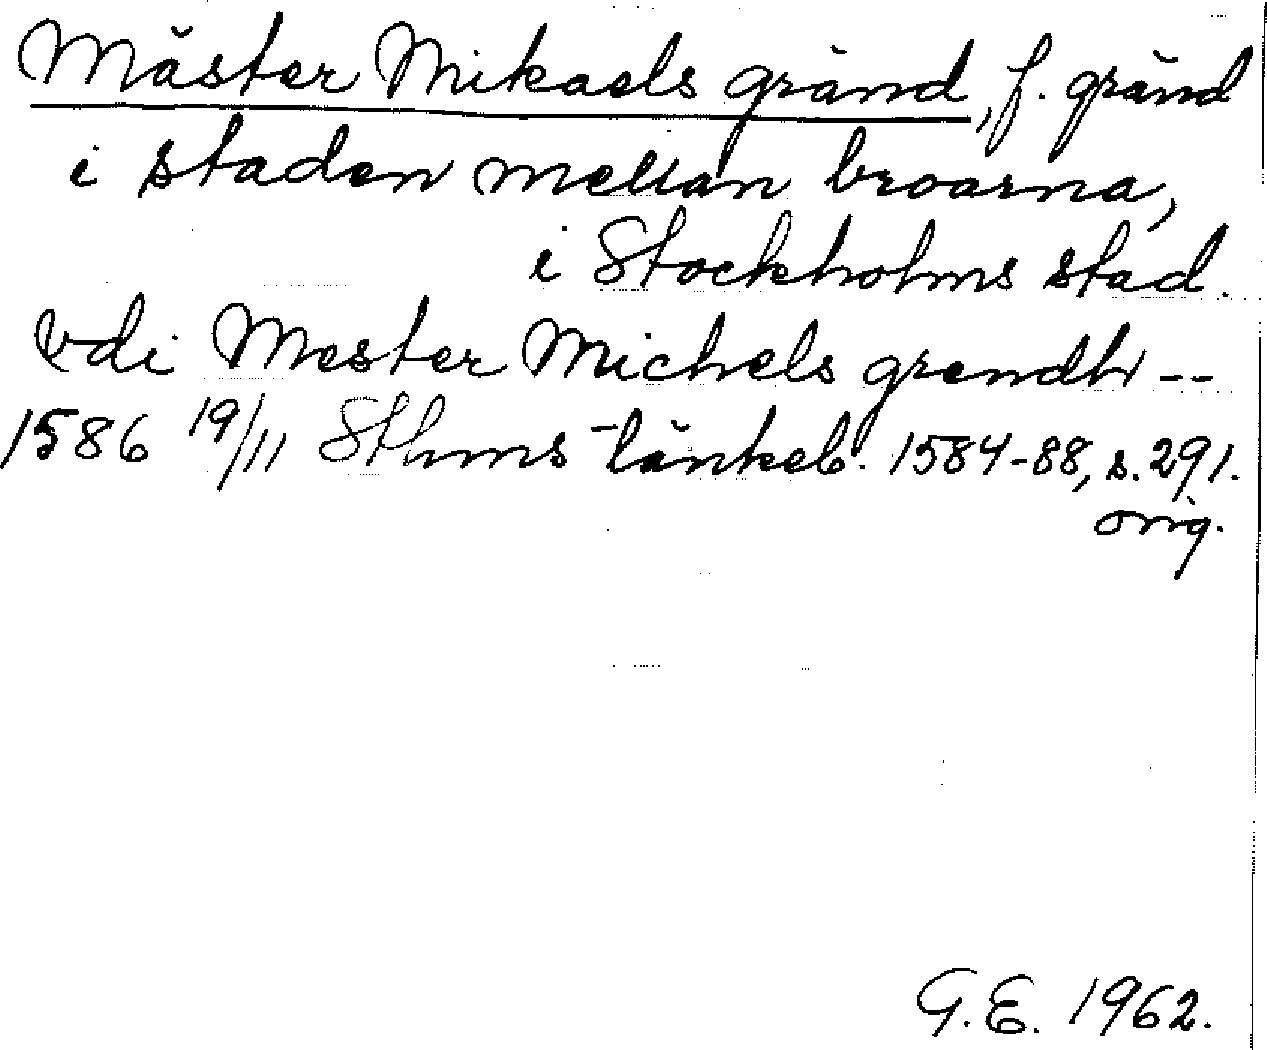 Mäster Mikaels gränd, f. gränd
i staden mellan broarna,
i Stockholms stad.
vdi Mester Michels grendh --
1586 19/11 Sthms tänkeb. 1584-88, s. 291.
orig.
G.E. 1962.